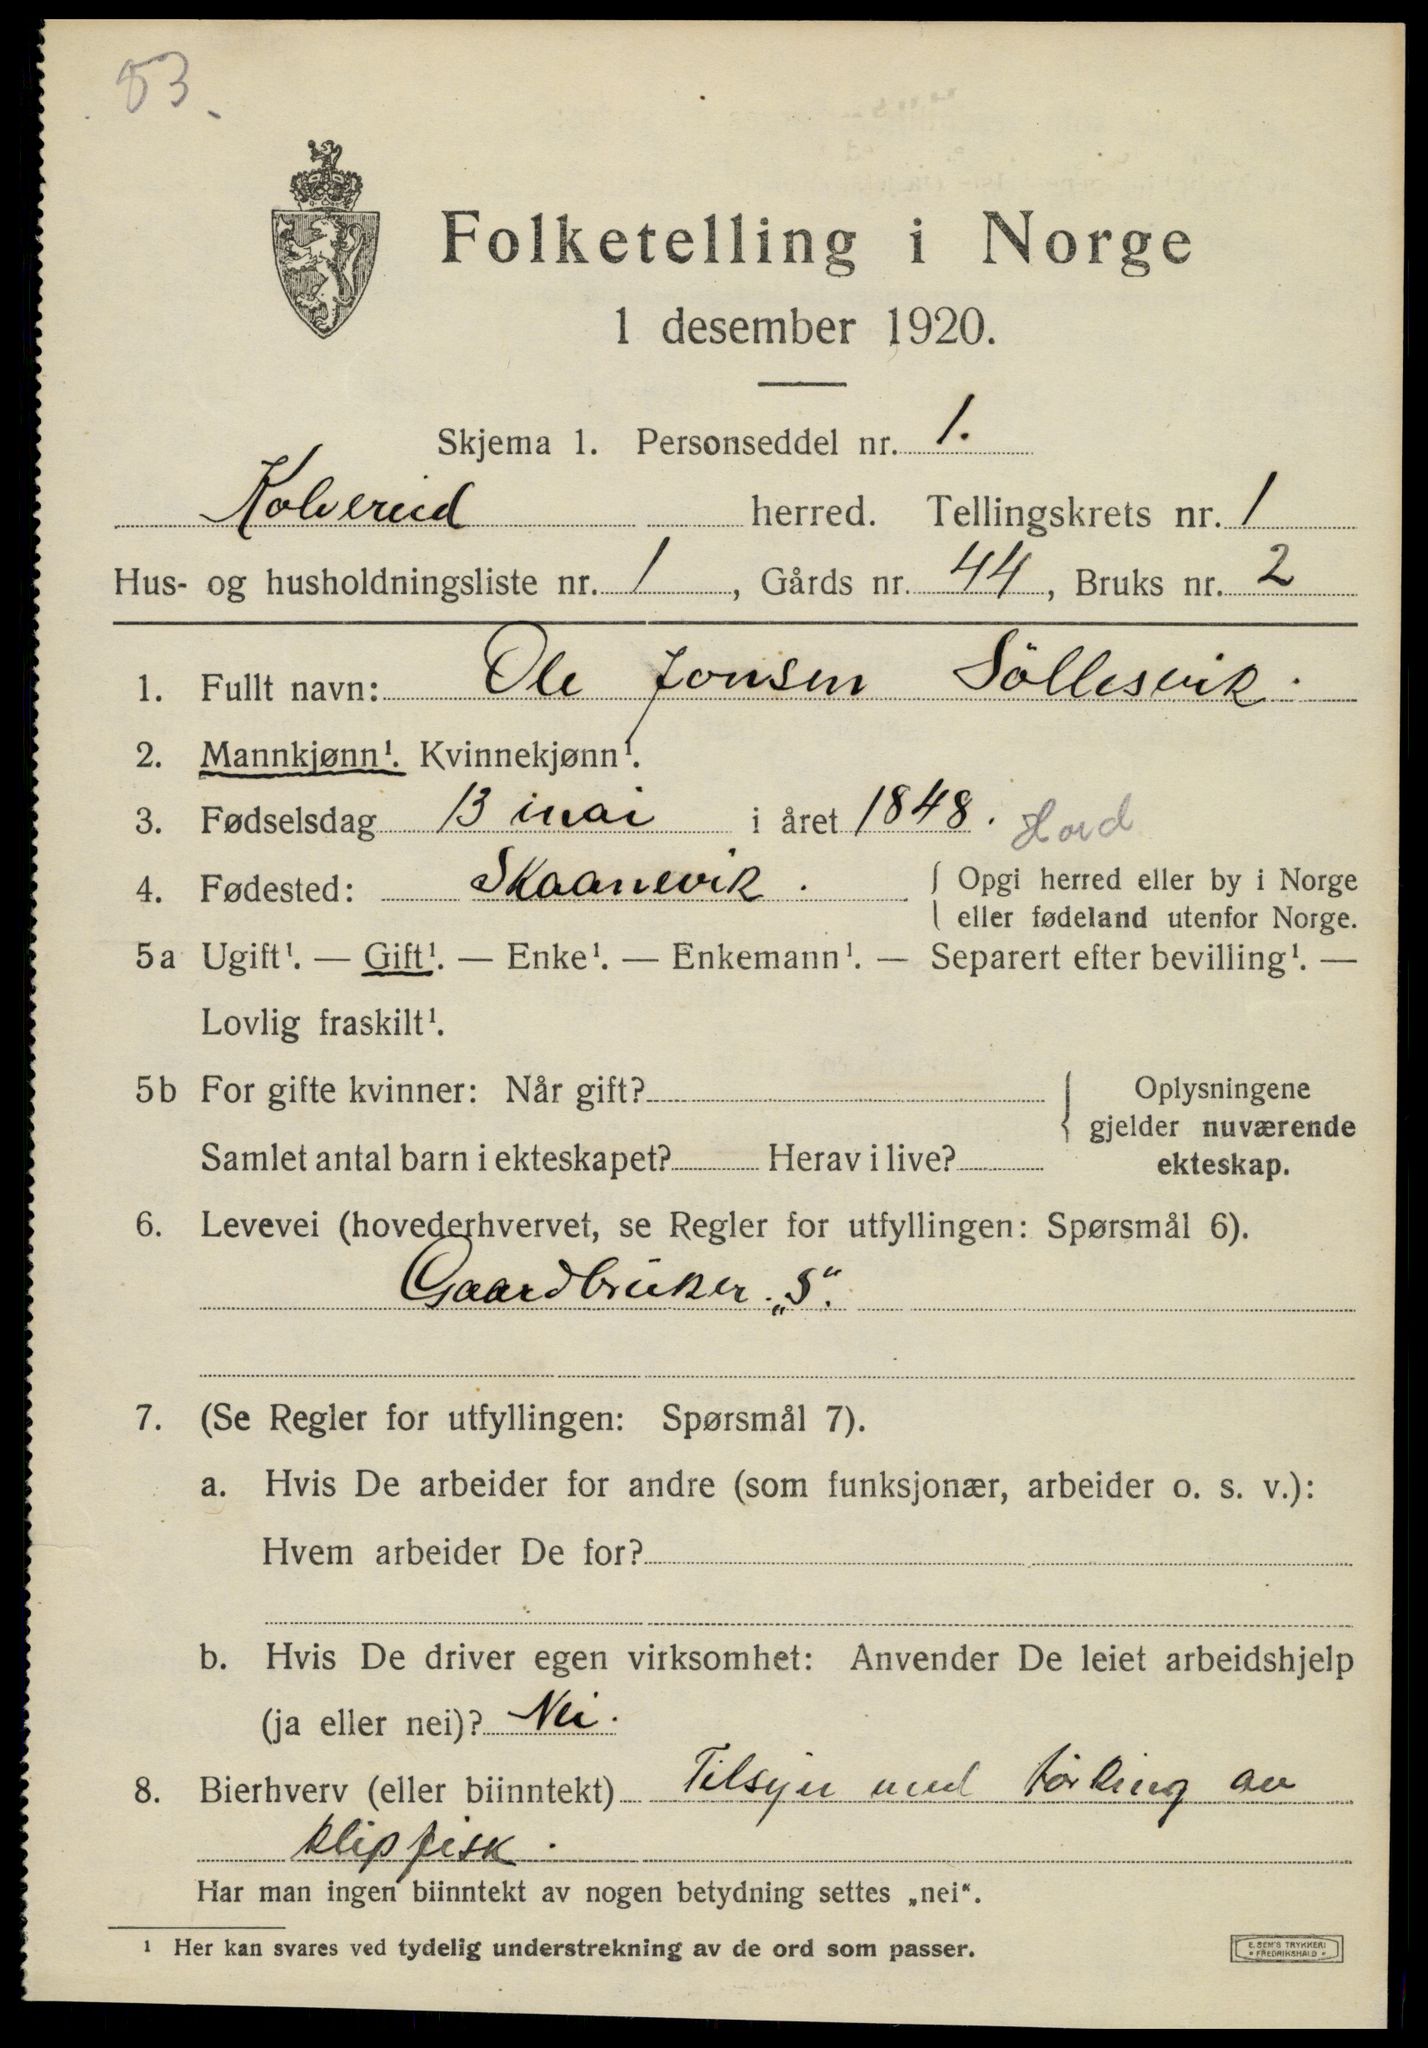 83.
Folketelling i Norge
1 desember 1920.
Skjema 1. Personseddel nr. 1.
Kolvereid herred. Tellingskrets nr. 1
Hus- og husholdningsliste nr. 1, Gårds nr. 44, Bruks nr. 2
1. Fullt navn: Ole Jonsen Söllesvik.
2. Mannkjønn¹. Kvinnekjønn¹.
3. Fødselsdag 13 mai i året 1848. Hord
4. Fødested: Skaanevik. { Opgi herred eller by i Norge
eller fødeland utenfor Norge.
5a Ugift¹. — Gift¹. — Enke¹. — Enkemann¹. — Separert efter bevilling¹. —
Lovlig fraskilt¹.
5b For gifte kvinner: Når gift? { Oplysningene
gjelder nuværende
Samlet antal barn i ekteskapet? Herav i live? ekteskap.
6. Levevei (hovederhvervet, se Regler for utfyllingen: Spørsmål 6).
Gaardbruker. „S“.
7. (Se Regler for utfyllingen: Spørsmål 7).
a. Hvis De arbeider for andre (som funksjonær, arbeider o. s. v.):
Hvem arbeider De for?
b. Hvis De driver egen virksomhet: Anvender De leiet arbeidshjelp
(ja eller nei)? Nei.
8. Bierhverv (eller biinntekt) Tilsyn med törking av
klipfisk.
Har man ingen biinntekt av nogen betydning settes „nei“.
¹ Her kan svares ved tydelig understrekning av de ord som passer.
E. SEM'S TRYKKERI
FREDRIKSHALD